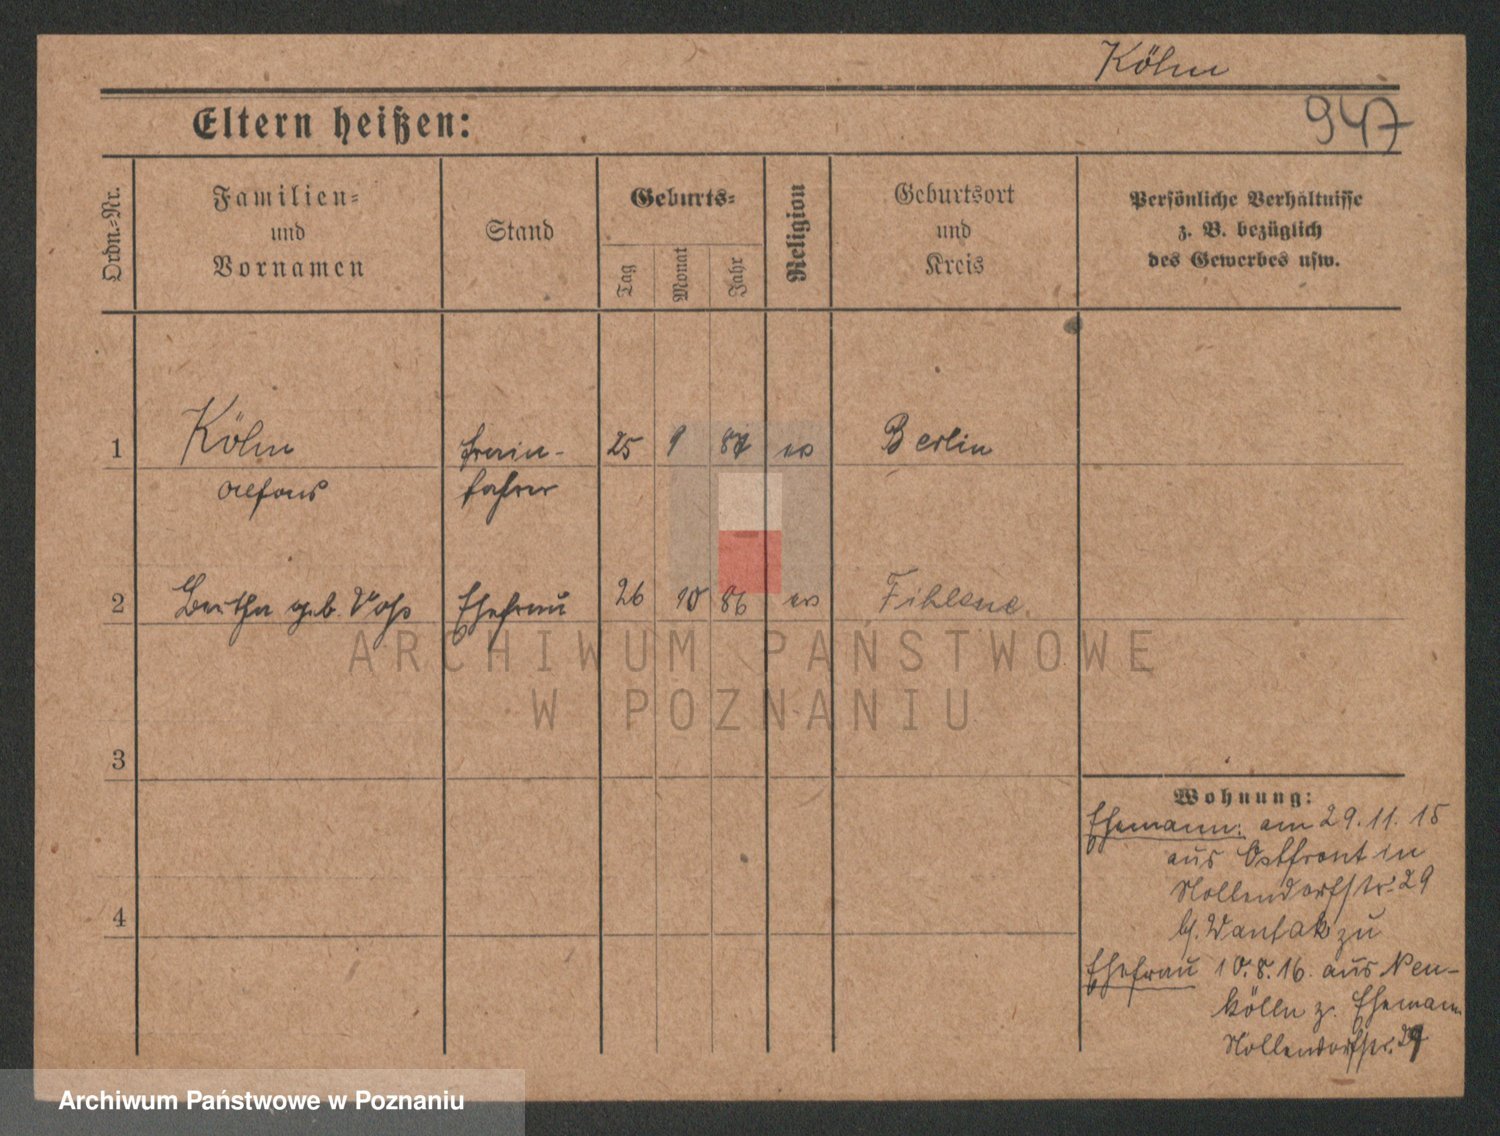 Köhn
947
Eltern heißen:
Ordn.-Nr.
Familien-
und
Vornamen
Stand
Geburts-
Tag
Monat
Jahr
Religion
Geburtsort
und
Kreis
Persönliche Verhältnisse
z. B. bezüglich
des Gewerbes usw.
1 Köhn 25 9 ev Berlin
Alfons fahrer
2 Bertha geb. Voß Ehefrau 26 10 86 ev Filehne
3
4
Wohnung:
Ehemann: am 29.11.15
aus Ostfront in
Nollendorfstr. 29
b. zu
Ehefrau 10.8.16. aus Neu-
kölln z. Ehemann
Nollendorfstr. 29
ARCHIWUM PAŃSTWOWE
W POZNANIU
Archiwum Państwowe w Poznaniu